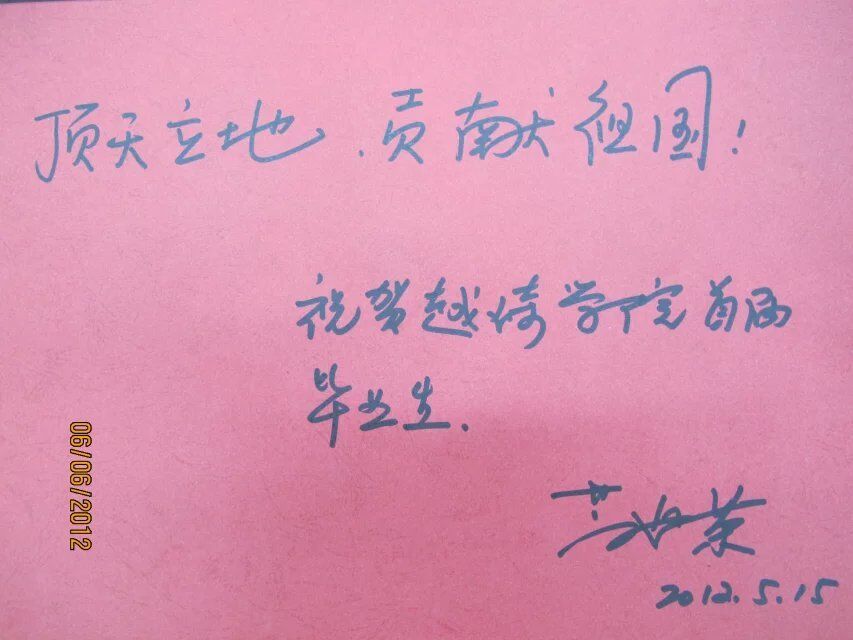 顶天立地、贡献祖国!
祝贺越崎学院首届
毕业生.
2012.5.15
06/06/2012